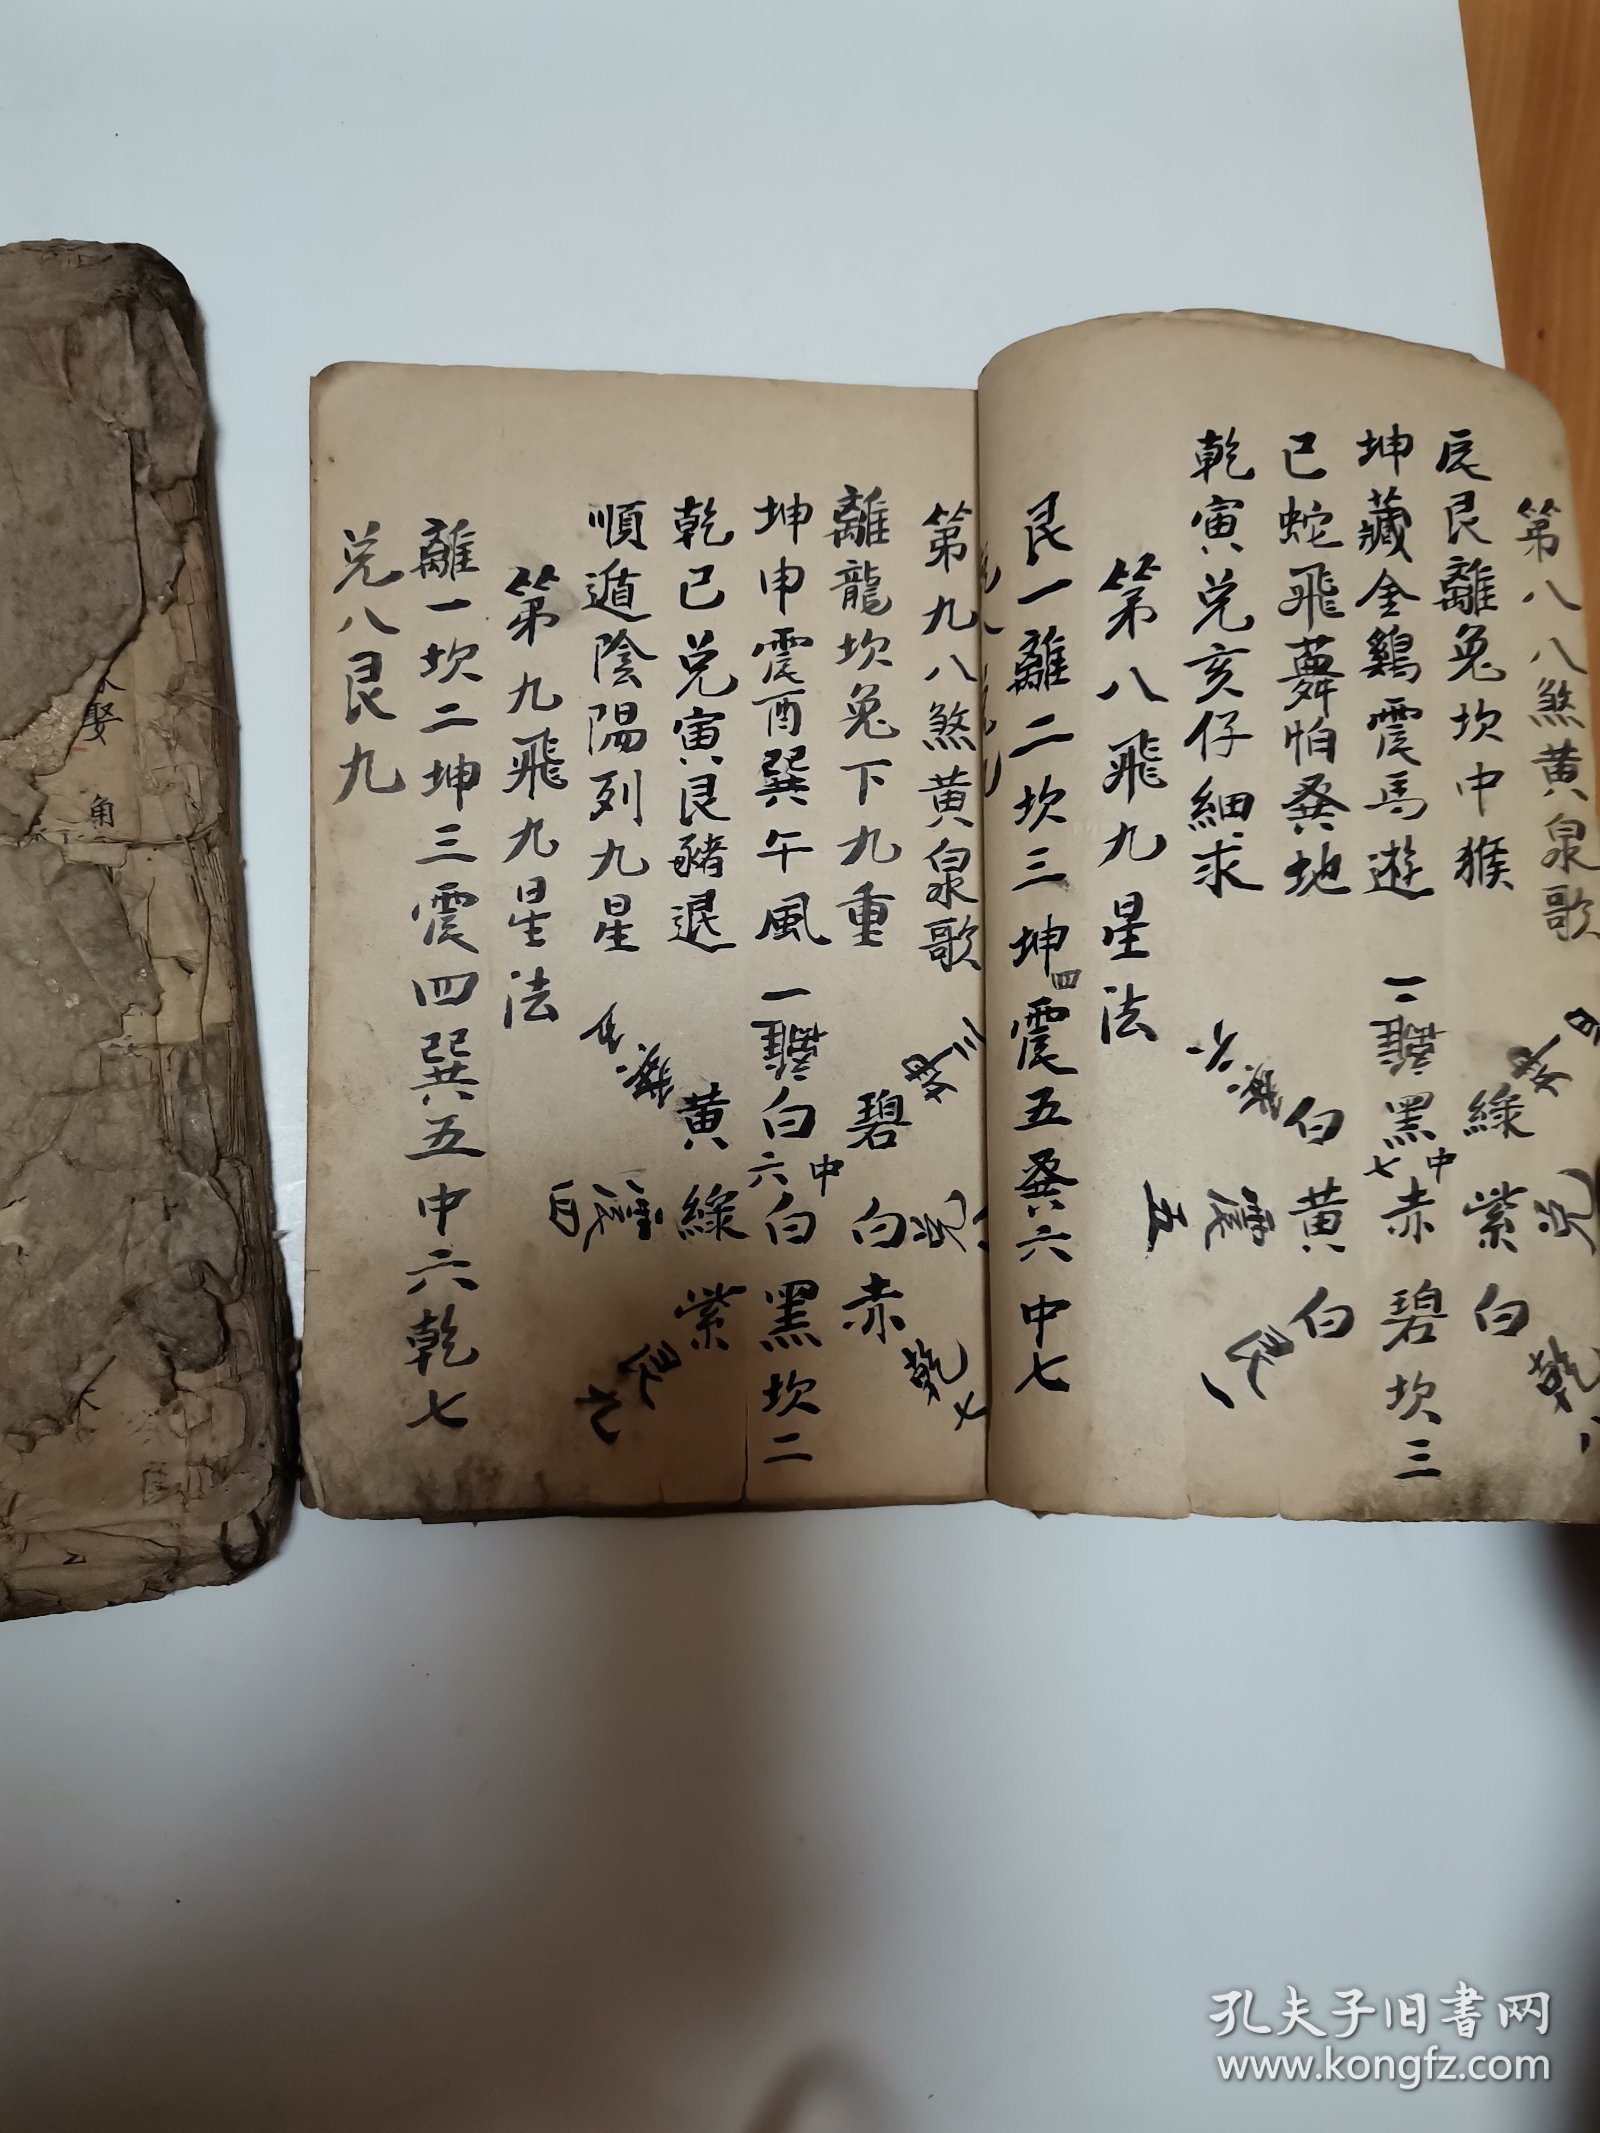 第八八煞黄泉歌
辰艮離兔坎中猴
坤藏金鷄震馬遊
已蛇飛舞怕巽地
乾寅兑亥仔細求
綠紫白
三離黑中七赤碧坎三
白黄白
震五
艮一
乾
第八飛九星法
艮一離二坎三坤四震五巽六中七
第九八煞黄泉歌
離龍坎兔下九重
坤申震酉巽午風
乾已兑寅艮豬退
順遁陰陽列九星
碧白赤
一離白中六白黑坎二
黄綠紫
乾七
艮九
第九飛九星法
離一坎二坤三震四巽五中六乾七
兑八艮九
娶
角
孔夫子旧书网
www.kongfz.com